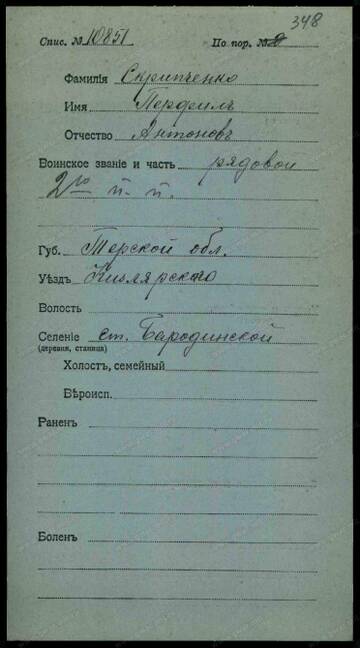 348
Спис. № 10851 По пор. №
Фамилія Скрипченко
Имя Перфилъ
Отчество Антоновъ
Воинское званіе и часть рядовой
2го п. п.
Губ. Терской обл.
Уѣздъ Кизлярского
Волость
Селеніе ст. Бародинской
(деревня, станица)
Холостъ, семейный
Вѣроисп.
Раненъ
Боленъ